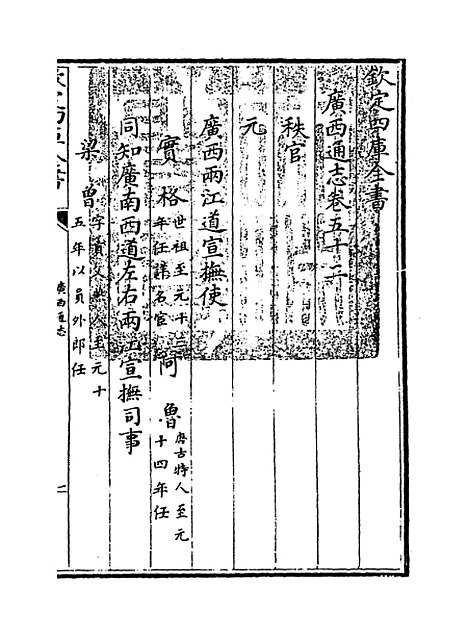 欽定四庫全書
廣西通志卷五十二
秩官
元
廣西兩江道宣撫使
實格 世祖至元十三年任詳名宦 阿魯 唐古特人至元十四年任
同知廣南西道左右兩江宣撫司事
梁曾 字貢父燕人至元十五年以員外郎任
欽定四庫全書
廣西通志
一